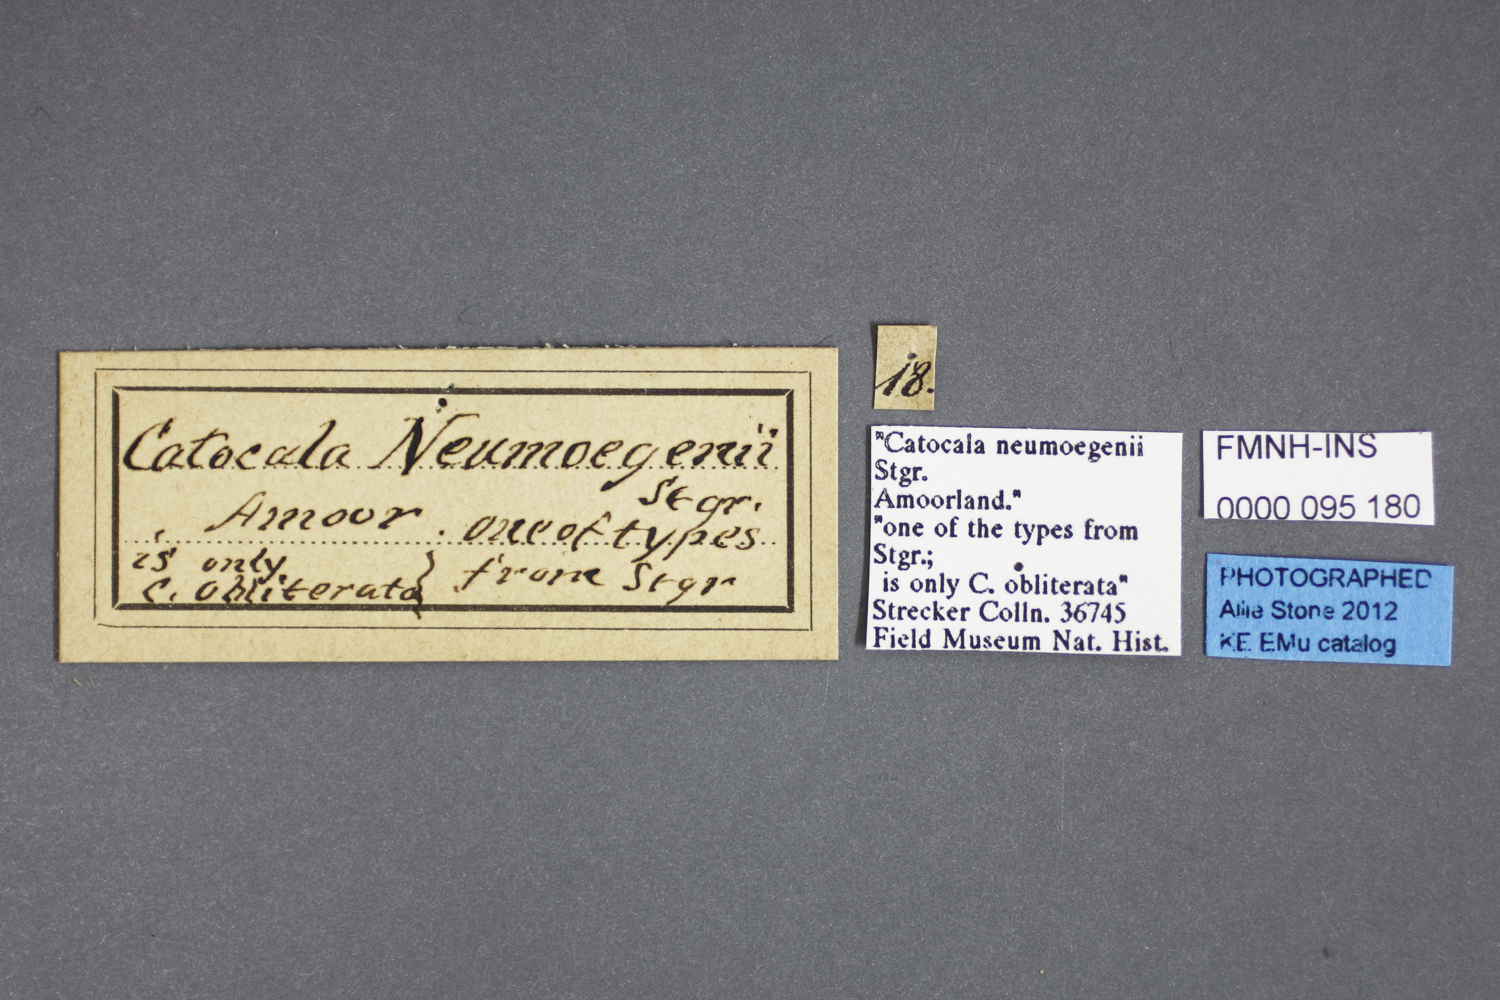 Catocala Neumoegenii
Stgr.
Amour. one of types
is only
C. obliterata } from Stgr
18.
"Catocala neumoegenii
Stgr.
Amoorland."
"one of the types from
Stgr.;
is only C. obliterata"
Strecker Colln. 36745
Field Museum Nat. Hist.
FMNH-INS
0000 095 180
PHOTOGRAPHED
Allie Stone 2012
KE EMu catalog